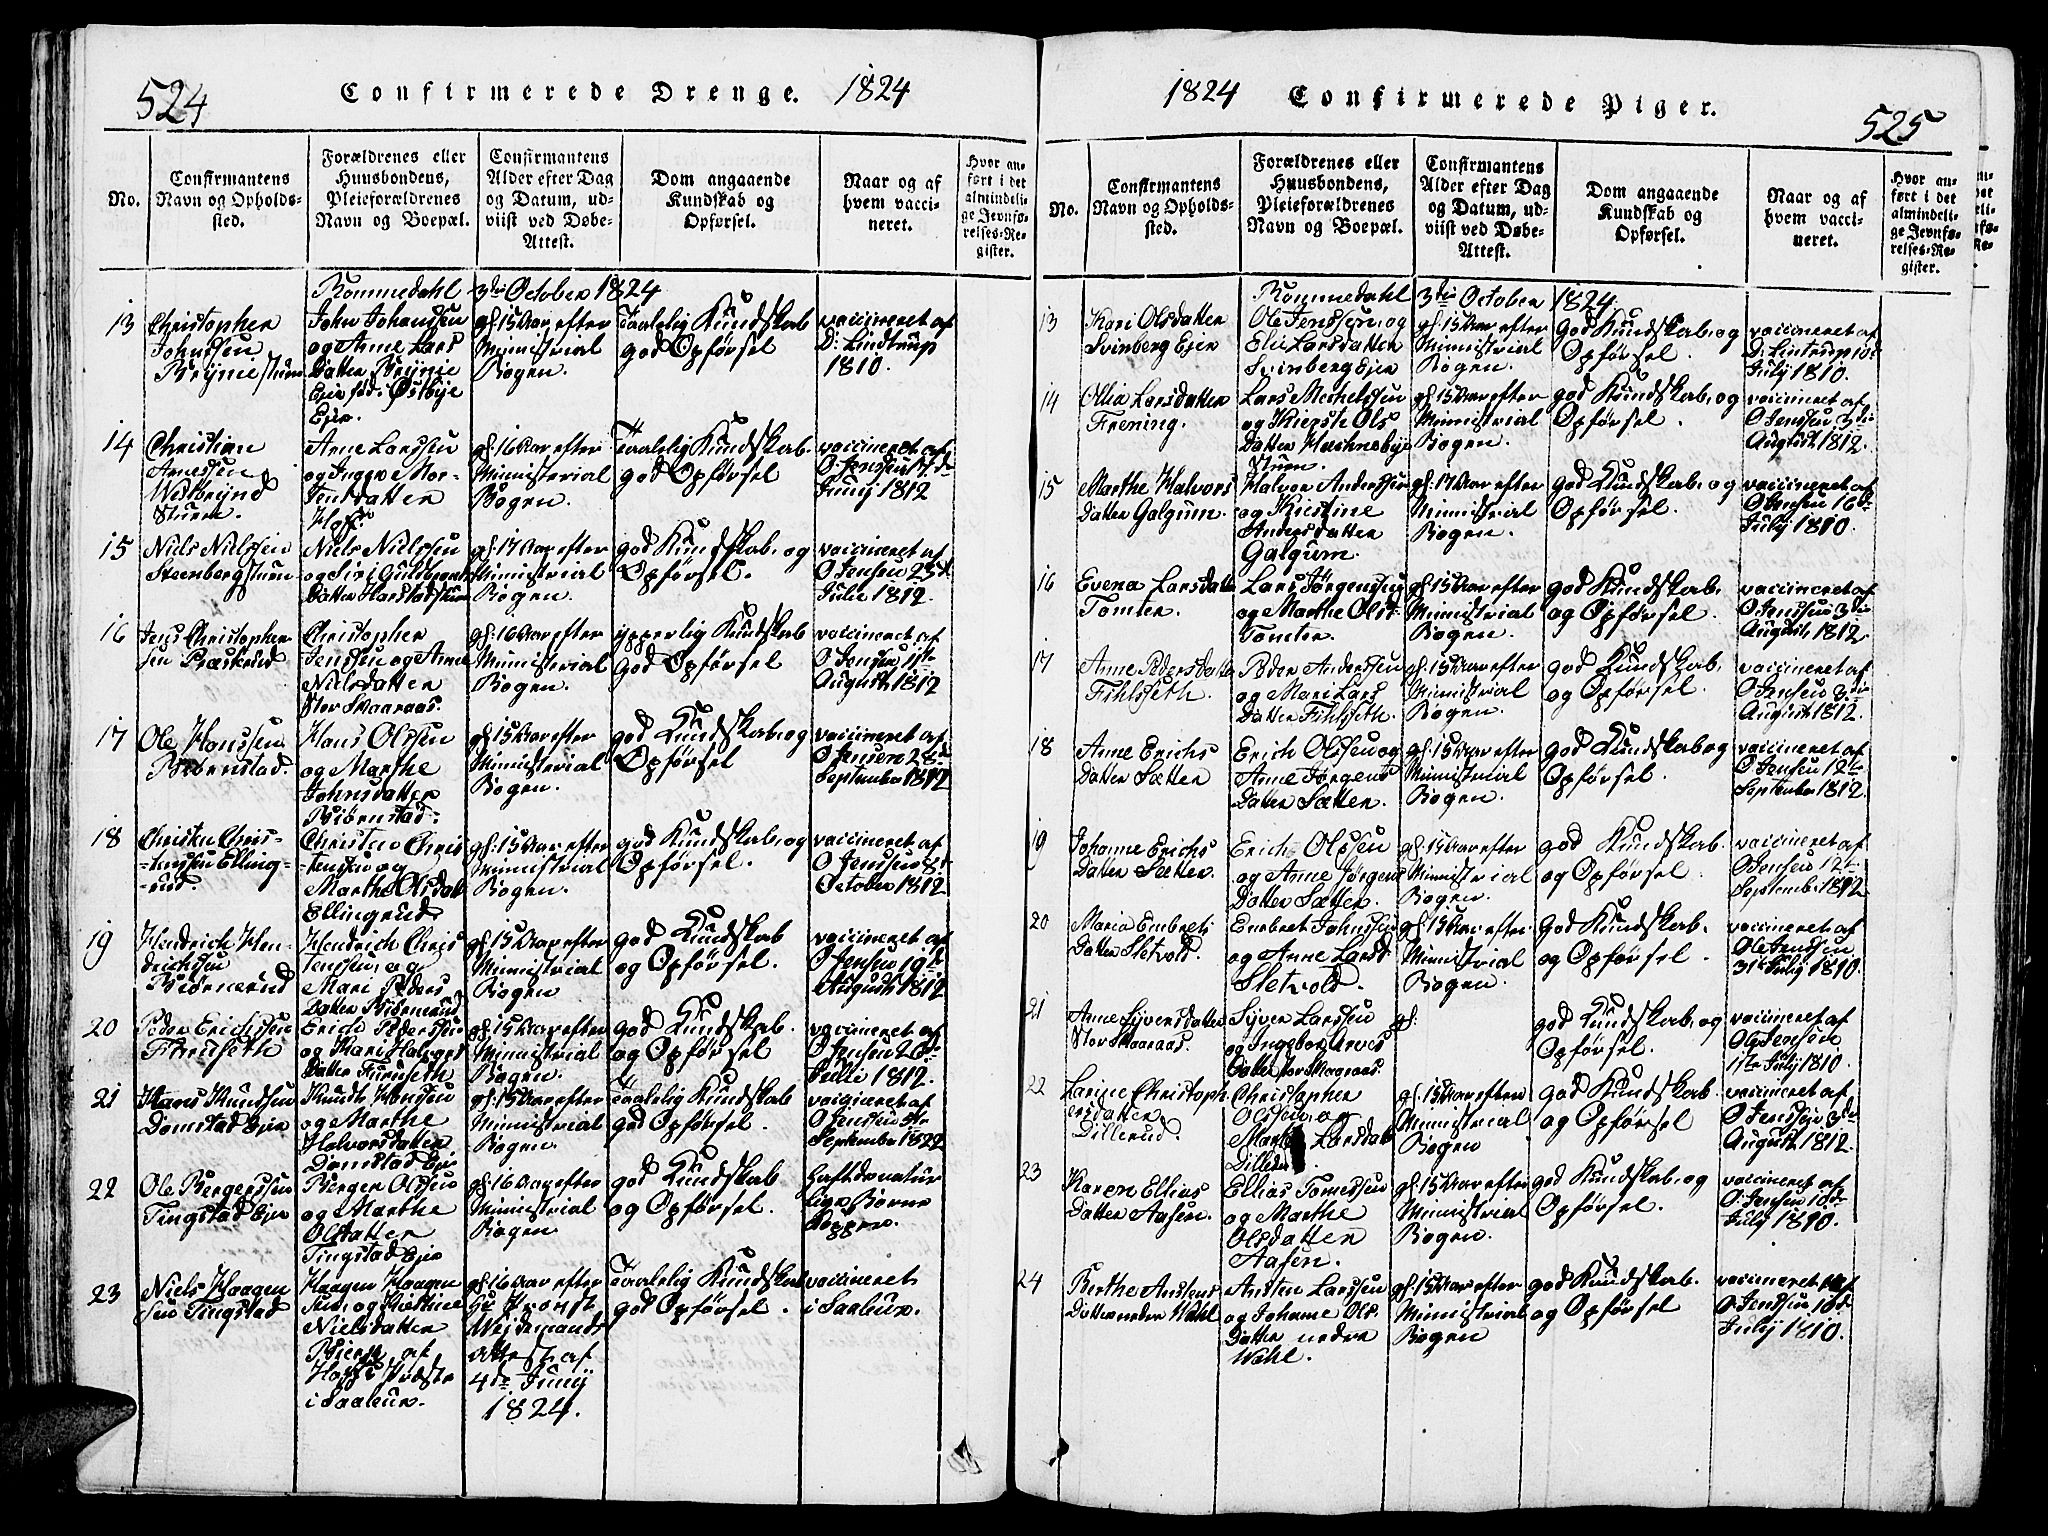 524
Confirmerede Drenge. 1824
No.
Confirmantens
Navn og Opholds-
sted.
Forældrenes eller
Huusbondens,
Pleieforældrenes
Navn og Boepæl.
Confirmantens
Alder efter Dag
og Datum, ud-
viist ved Døbe-
Attest.
Dom angaaende
Kundskab og
Opførsel.
Naar og af
hvem vacci-
neret.
Hvor an-
ført i det
almindeli-
ge Jevnfø-
relses-Re-
gister.
Rommedahl 3die October 1824
13
Christopher
Johnssen
Brynie stuen
John Johanssen
og Anne Lars
Datter Brynie
Eier fød: Østbye
Eier.
gl: 15 Aar efter
Ministrial
Bogen.
Taalelig Kundskab
god Opførsel
vaccineret af
D: Lindtrup
1810.
14
Christian
Arnessen
Westbrynd
Stuen.
Arne Larssen
og Inger Mor-
tensdatter
gl: 16 Aar efter
Ministrial
Bogen.
Taalelig Kundskab.
god Opførsel
vaccineret af
O. Jenssen
Junij 1812
15
Niels Nielssen
Steenberg stuen
Niels Nielssen
og Siri Guldbrands
Datter Harstadstuen
gl: 17 Aar efter
Ministrial
Bogen.
god Kundskab, og
Opførsel.
vaccineret af
O Jensen 23d
Julii 1812.
16
Jens Christopher
sen Præskerud
Christopher
Jenssen og Anne
Nielsdatter
Stor Skaaraas.
gl: 16 Aar efter
Ministrial
Bogen.
ypperlig Kundskab
God Opførsel
vaccineret af
O Jensen 1ste
August 1812
17
Ole Hanssen
Biørnstad.
Hans Olssen
og Marthe
Johnsdatter
Biørnstad.
gl: 15 Aar efter
Ministrial
Bogen.
god Kundskab, og
Opførsel
vaccineret af
O Jensen 28d
September 1812
18
Christen Chris-
-tenssen Elling-
-rud.
Christen Chris
tenssen og
Marthe Olsdat
Ellingrud
gl: 15 Aar efter
Ministrial
Bogen.
god Kundskab, og
Opførsel.
vaccineret af
O Jenssen 8d
October 1812
19
Hendrich Hen-
drichssen
Biørnerud
Hendrich Chris
tenssen, og
Mari Peders
Datter Biørnerud
gl: 15 Aar efter
Ministrial
Bogen
god Kundskab
og Opførsel.
vaccineret af
O Jensen 19d
August 1812
20
Peder Erichssen
Furuseth
Erich Pederssen
og Kari Halvors
Datter Furuseth
gl: 15 Aar efter
Ministrial
Bogen.
god Kundskab.
og Opførsel.
vaccineret af
O Jensen 26de
Julli 1812.
21
Hans Knudssen
Domstad Eier
Knudt Hanssen
og Marthe
Halvorsdatter
Domstad Eje
gl: 15 Aar efter
Ministrial
Bogen.
Taalelig Kundskab
god Opførsel.
vaccineret af
O Jenssen
September 1822
22
Ole Bergerssen
Tingstad Eier
Berger Olssen
og Marthe
Olsdatter
Tingstad Eje
gl: 16 Aar efter
Ministrial
Bogen
god Kundskab
og Opførsel.
haft de natur
lige Børne
kopper.
23
Niels Haagen
sen Tingstad
Haagen Haagen
sen, og Kirstine
Nielsdatter
af
i Saaleur.
gl: 16 Aar efter
Hr Provst
Wejdemands
Attest af
4de Junij
1824.
Taalelig Kundskab
god Opførsel.
vaccineret
i Saaleur.
1824 Confirmerede Piger.
525
No.
Confirmantens
Navn og Opholds-
sted.
Forældrenes eller
Huusbondens,
Pleieforældrenes
Navn og Boepæl.
Confirmantens
Alder efter Dag
og Datum, ud-
viist ved Døbe-
Attest.
Dom angaaende
Kundskab og
Opførsel.
Naar og af
hvem vacci-
neret.
Hvor an-
ført i det
almindeli-
ge Jevnfø-
relses-Re-
gister.
Rommedahl 3die October 1824.
13
Kari Olsdatter
Svinberg Ejer
Ole Jenssen, og
Elie Larsdatter
Svinberg Ejer
gl: 15 Aar efter
Ministrial
Bogen.
God Kundskab, og
Opførsel.
vaccineret af
D: Lintrup 10d
July 1810.
14
Ollia Larsdatter
Frening.
Lars Mechelssen
og Kiersti Ols
Datter
Stuen.
gl: 15 Aar efter
Ministrial
Bogen.
god Kundskab, og
Opførsel.
vaccineret af
O Jenssen 3die
August 1812.
15
Marthe Halvors
Datter Galgum.
Halvor Anderssen
og Kirstine
Andersdatter
Galgum.
gl: 17 Aar efter
Ministrial
Bogen.
god Kundskab, og
Opførsel.
vaccineret af
O Jensen 16d
July 1810.
16
Evena Larsdatter
Tomter.
Lars Jørgenssen
og Marthe Olsd
Tomter.
gl: 15 Aar efter
Ministrial
Bogen.
god Kundskab,
og Opførsel.
vaccineret af
O Jenssen 3die
August 1812.
17
Anne Pedersdatter
Fihlseth.
Peder Anderssen
og Mari Lars
Datter Fihlseth.
gl: 15 Aar efter
Ministrial
Bogen.
god Kundskab,
og Opførsel.
vaccineret af
O Jensen 3die
August 1812.
18
Anne Erichs
Datter Sætter
Erich Olssen og
Anne Jørgens
Datter Sætter.
gl: 15 Aar efter
Ministrial
Bogen.
god Kundskab og
Opførsel.
vaccineret af
O Jensen 12te
September 1812.
19
Johanne Erichs
Datter Sætter.
Erich Olssen
og Anne Jørgens
Datter Sætter.
gl: 15 Aar efter
Ministrial
Bogen.
god Kundskab.
og Opførsel.
vaccineret af
O Jensen 12te
September 1812
20
Maria Embrets
Datter Sletvold.
Embret Johnssen
og Anne Larsd
Sletvold.
gl: 15 Aar efter
Ministrial
Bogen.
God Kundskab.
og Opførsel.
vaccineret af
Ole Jenssen
31te July 1810.
21
Anne Syversdatter
Stor Skaaraas.
Syver Larssen
og Ingebor Arnes
Datter Stor Skaaraas.
gl:
god Kundskab, og
Opførsel.
vaccineret af
Ole Jensen
11te July 1810.
22
Larine Christoph
ersdatter
Dillerud.
Christopher
Olssen, og
Larsdat
Dillerud.
gl: 15 Aar efter
Ministrial
Bogen
god Kundskab.
og Opførsel
vaccineret af
O Jenssen 3die
August 1812.
23
Karen Ellias
Datter Aasen.
Ellias Tomessen
og Marthe
Olsdatter
Aasen.
gl: 15 Aar efter
Ministrial
Bogen.
god Kundskab, og
Opførsel.
vaccineret af
O Jensen 10de
July 1810.
24
Berthe Anstens
Datter nedre Wahl
Ansten Larssen
og Johanne Ols
Datter nedre
Wahl.
gl: 15 Aar efter
Ministrial
Bogen
god Kundskab.
og Opførsel
vaccineret af
O Jenssen 10d
July 1810.